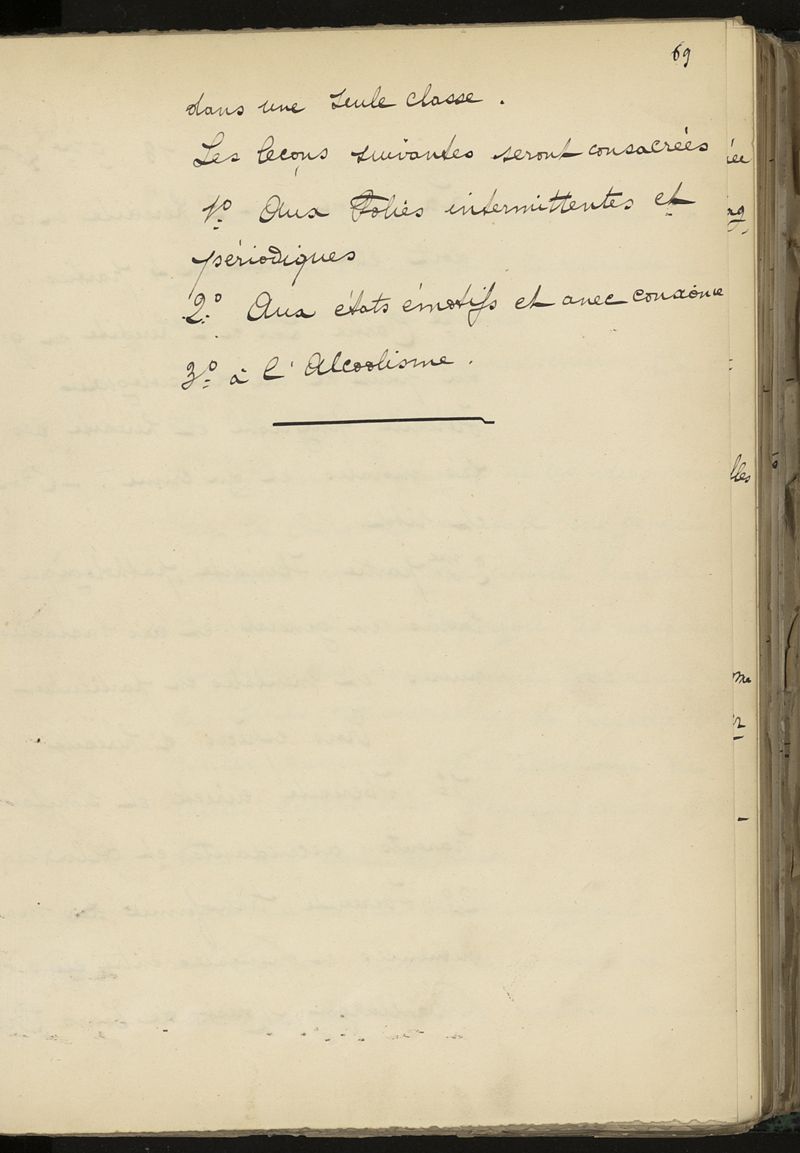 69
dans une seule classe.
Les leçons suivantes seront consacrées
1º Aux Folies intermittentes et
périodiques
2º Aux états émotifs et avec
3º à l'Alcoolisme.
lles